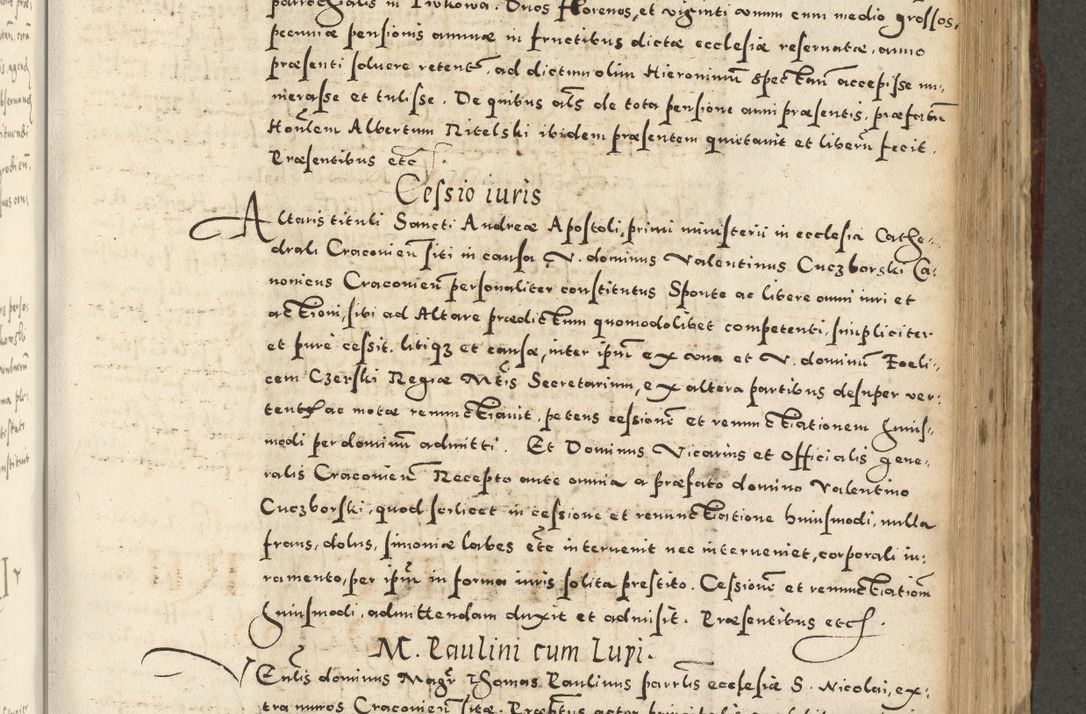 parrochialis in Iwkowa. Duos Florenos, et viginti unum cum medio grossos,
pecuniæ pensionis annuæ in fructibus dictæ ecclesiæ reservatæ, anno
præsenti solvere retent, ad dictum olim Hieronimū spectan accepisse nu-
merasse et tulisse. De quibus als de tota pensione anni præsentis, præfatū
Honlem Albertum Ritelski ibidem præsentem quietavit et liberū fecit.
Præsentibus etc.
Cessio iuris
Altaris tituli Sancti Andreæ Apostoli, primi ministerii in ecclesia Cathe-
drali Cracovien siti in causa V. dominus Valentinus Cuczborski Ca-
nonicus Cracovien personaliter constitutus Sponte ac libere omni iuri et
actioni, sibi ad Altare prædictum quomodolibet competenti, simpliciter
et pure cessit. litiqz et causæ, inter ipm ex una et V. dominū Fœli-
cem Czerski Regiæ Mtis Secretarium, ex altera partibus desuper ver-
tent ac motæ renunctiavit, petens cessionē et renunctiationem huius-
modi per dominū admitti. Et Dominus Vicarius et Officialis gene-
ralis Cracovien Recepto ante omnia a præfato domino Valentino
Cuczborski, quod scilicet in cessione et renunctiatione huiusmodi, nulla
fraus, dolus, simoniæ labes etc intervenit nec interveniet, corporali iu-
ramento, per ipm in forma iuris solita prestito. Cessionē et renunctiationē
huiusmodi, admittendam duxit et admisit. Præsentibus etc.
M. Paulini cum Lupi.
Venlis dominus Magr Thomas Paulinus parrlis ecclesiæ S. Nicolai, ex-
tra muros Cracovien sitæ. Præfatus actor